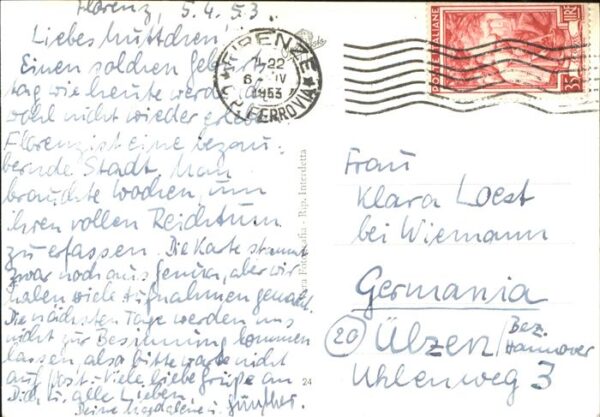 Florenz, 5.4.53.
Liebes Muttchen,
Einen solchen Geburts
tag wie heute werde ich
wohl nicht wieder erleben
Florenz ist eine bezau-
bernde Stadt. Man
brauchte Wochen, um
ihren vollen Reichtum
zu erfassen. Die Karte stammt
zwar noch aus Genua, aber wir
haben viele Aufnahmen gemacht.
Die nächsten Tage werden uns
nicht zur Besinnung kommen
lassen, also bitte warte nicht
auf Post. Viele liebe Grüße an
Dich u. alle Lieben,
Deine Magdalene u. Günther.
FIRENZE
7-22
6-IV
1953
FERROVIA
POSTE ITALIANE
LIRE
35
Fotografia - Rip. Interdetta
24
Frau
Klara Loest
bei Wiemann
Germania
20 Ülzen / Bez. Hannover
Uhlenweg 3